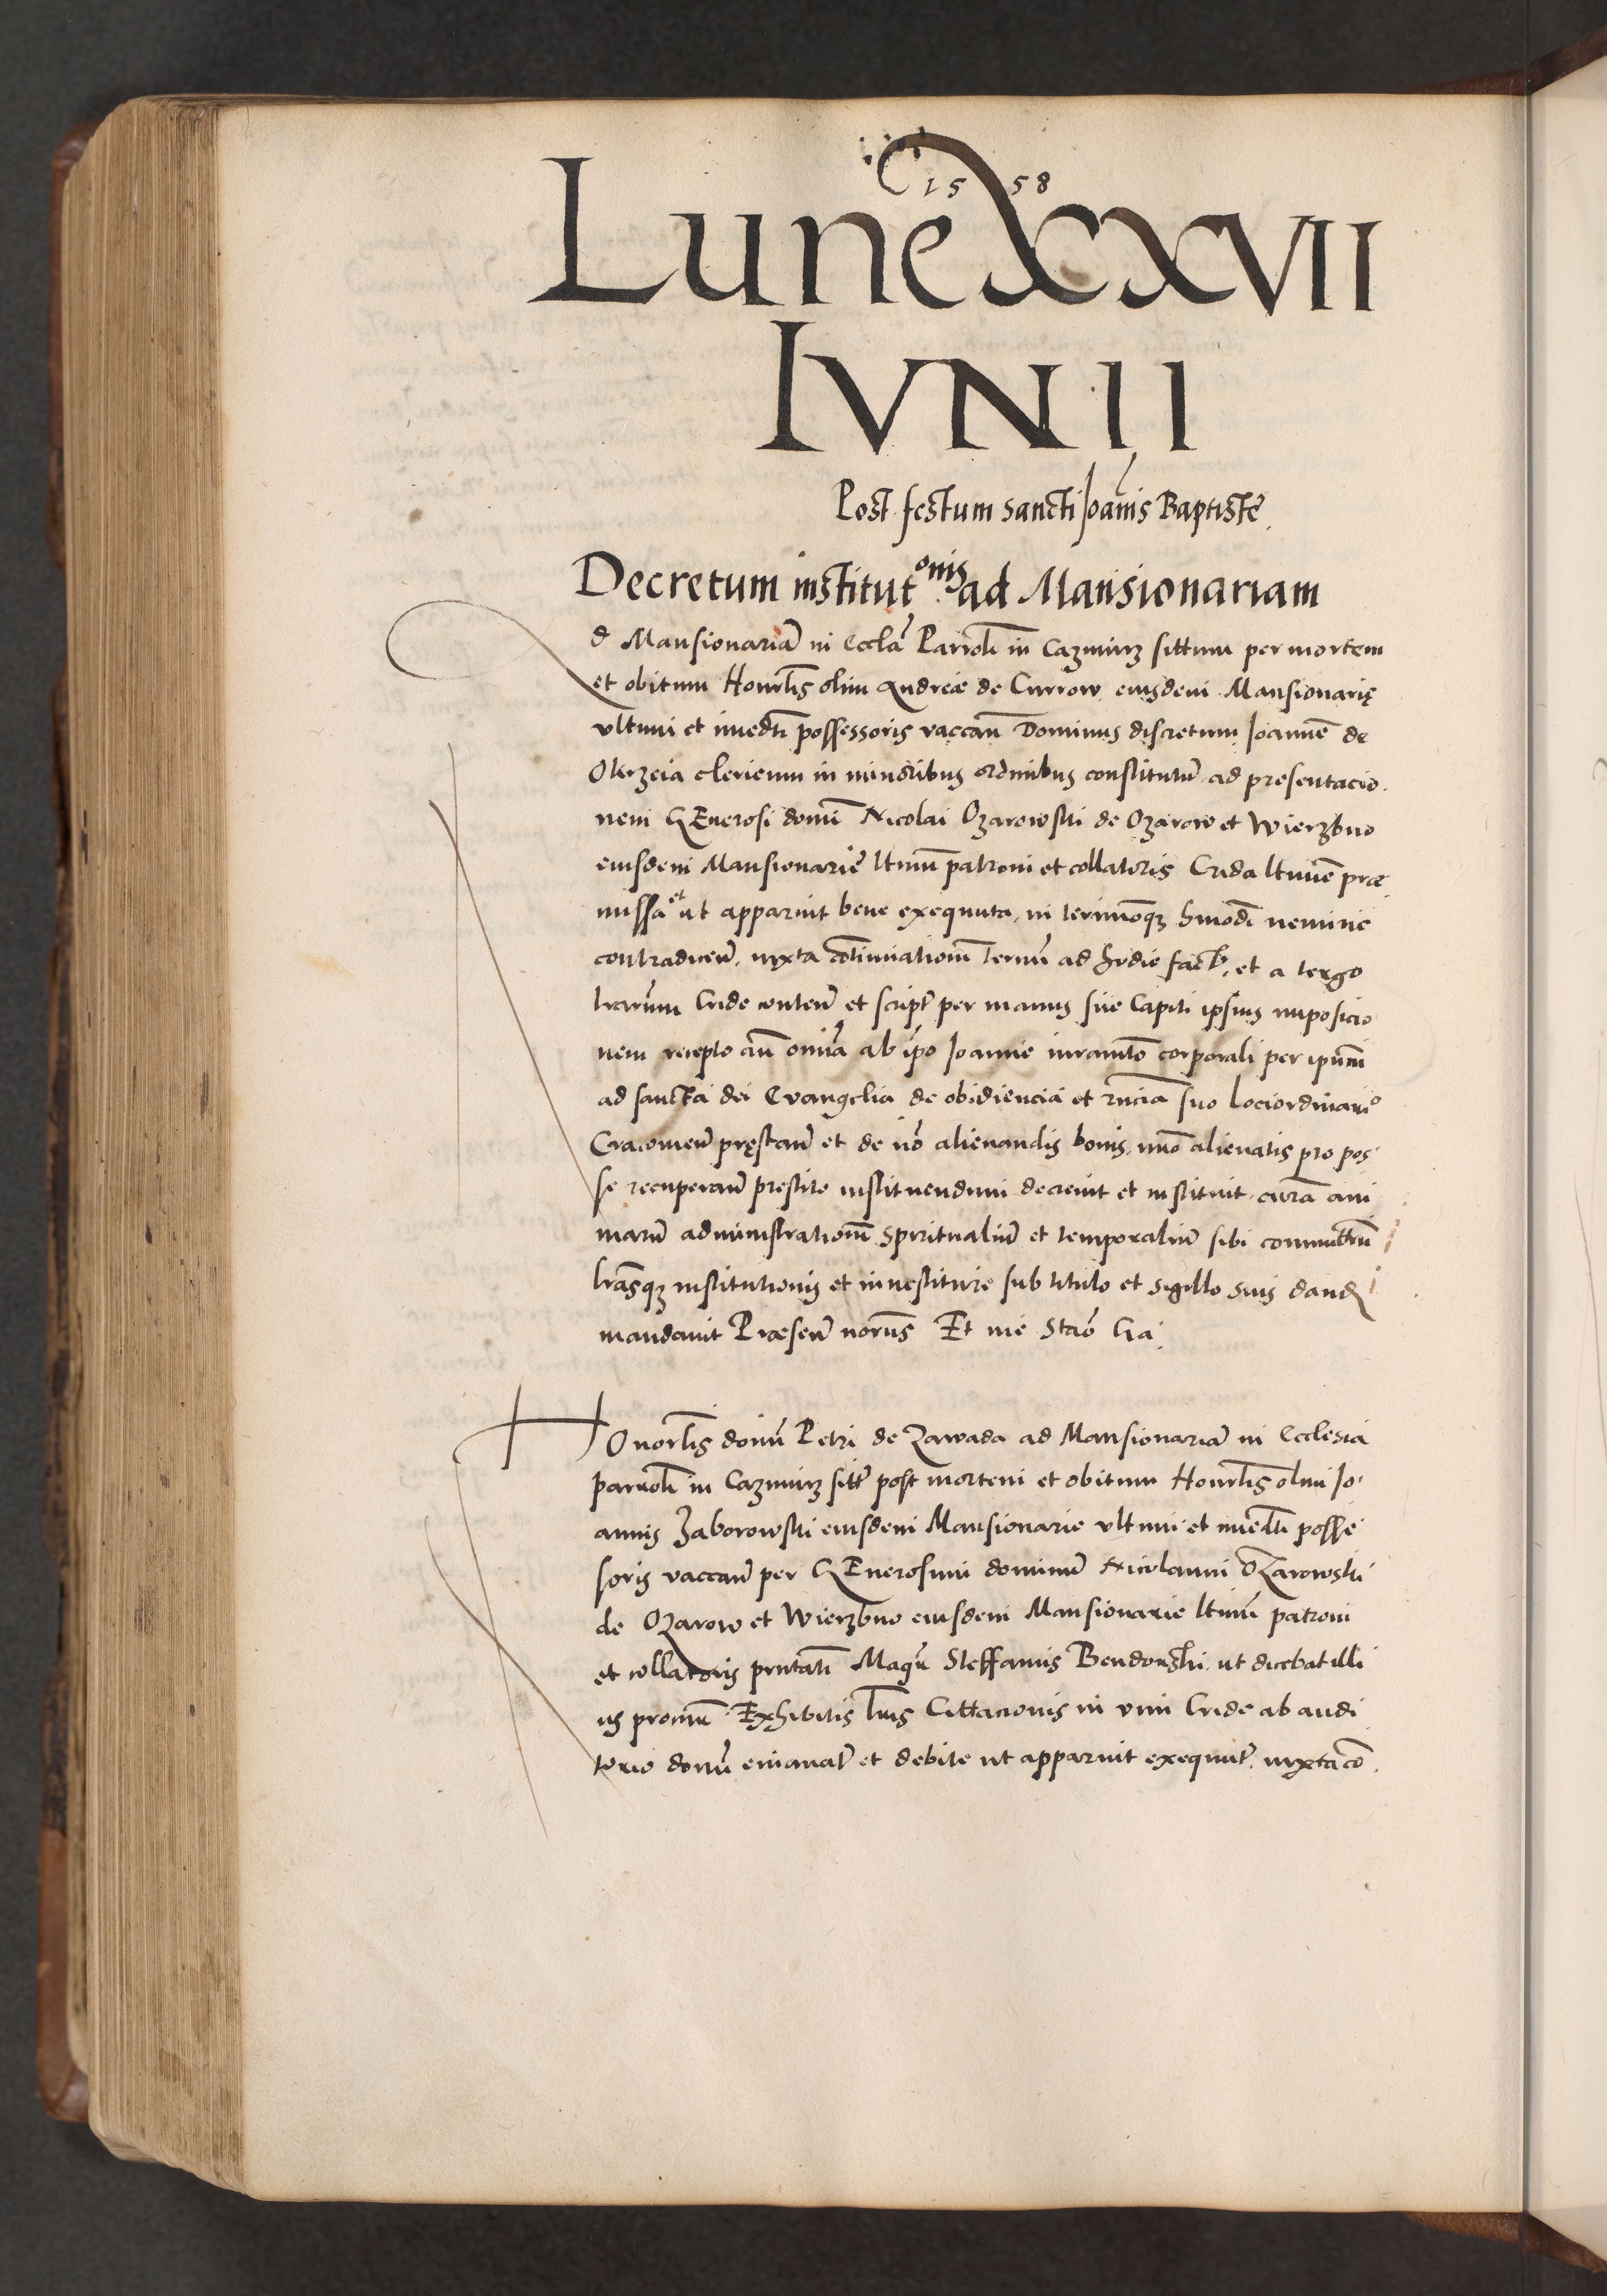 1558
Lune XXVII
IVNII
Post festum sancti Joãnis Baptiste
Decretum institutonis ad Mansionariam
Ad Mansionariã in Ecclã Parrolĩ in Cazmirz sittum per mortem
et obitum Honrlis olim Andreæ de Currow eiusdem Mansionarię
vltimi et imedti possessoris vaccan̄ Dominus discretum Joannẽ de
clericum in minoribus ordinibus constitutũ ad presentacio
nem GEnerosi domĩ Nicolai Ozarowski de Ozarow et Wierzbno
eiusdem Mansionariẽ ltimũ patroni et collatoris Crida ltimẽ præ
missa et ut apparuit bene exequuta, in terminoq; hmõdi nemine
contradicen̄, iuxta cõtinuationẽ termĩ ad hodie fact, et a tergo
lrarum Cride conten̄ et script per manus sue Capiti ipsius imposicio
nem recepto ab ipo Joanne iuramto corporali per ipum
ad sancta dei Evangelia de obidiencia et rncia suo Lociordinario
Cracovien̄ pręstan̄ et de nõ alienandis bonis, imo alienatis pro pos
se recuperan̄ prestito instituendum decrevit et instituit, curã ani
marũ administrationẽ spiritualiũ et temporaliũ sibi committen̄
lrasq; institutionis et investiture sub titulo et sigillo suis dandi
mandavit Præsen̄
Honorlis domĩ Petri de Zawada ad Mansionariã in Ecclesia
parrolĩ in Cazmirz sitt post mortem et obitum Honrlis olim Jo
annis Zaborowski eiusdem Mansionarie vltimi et imedti posse
soris vaccan̄ per GEnerosum dominũ Nicolaum OZarowski
de Ozarow et Wierzbno eiusdem Mansionarie ltimũ patroni
et collatoris prntati Magr Steffanus Bendonski, ut dicebat illi
us procur Exhibitis lris Cittacionis in vim Cride ab audi
torio domĩ emanat et debite ut apparuit exequut, iuxta cõ